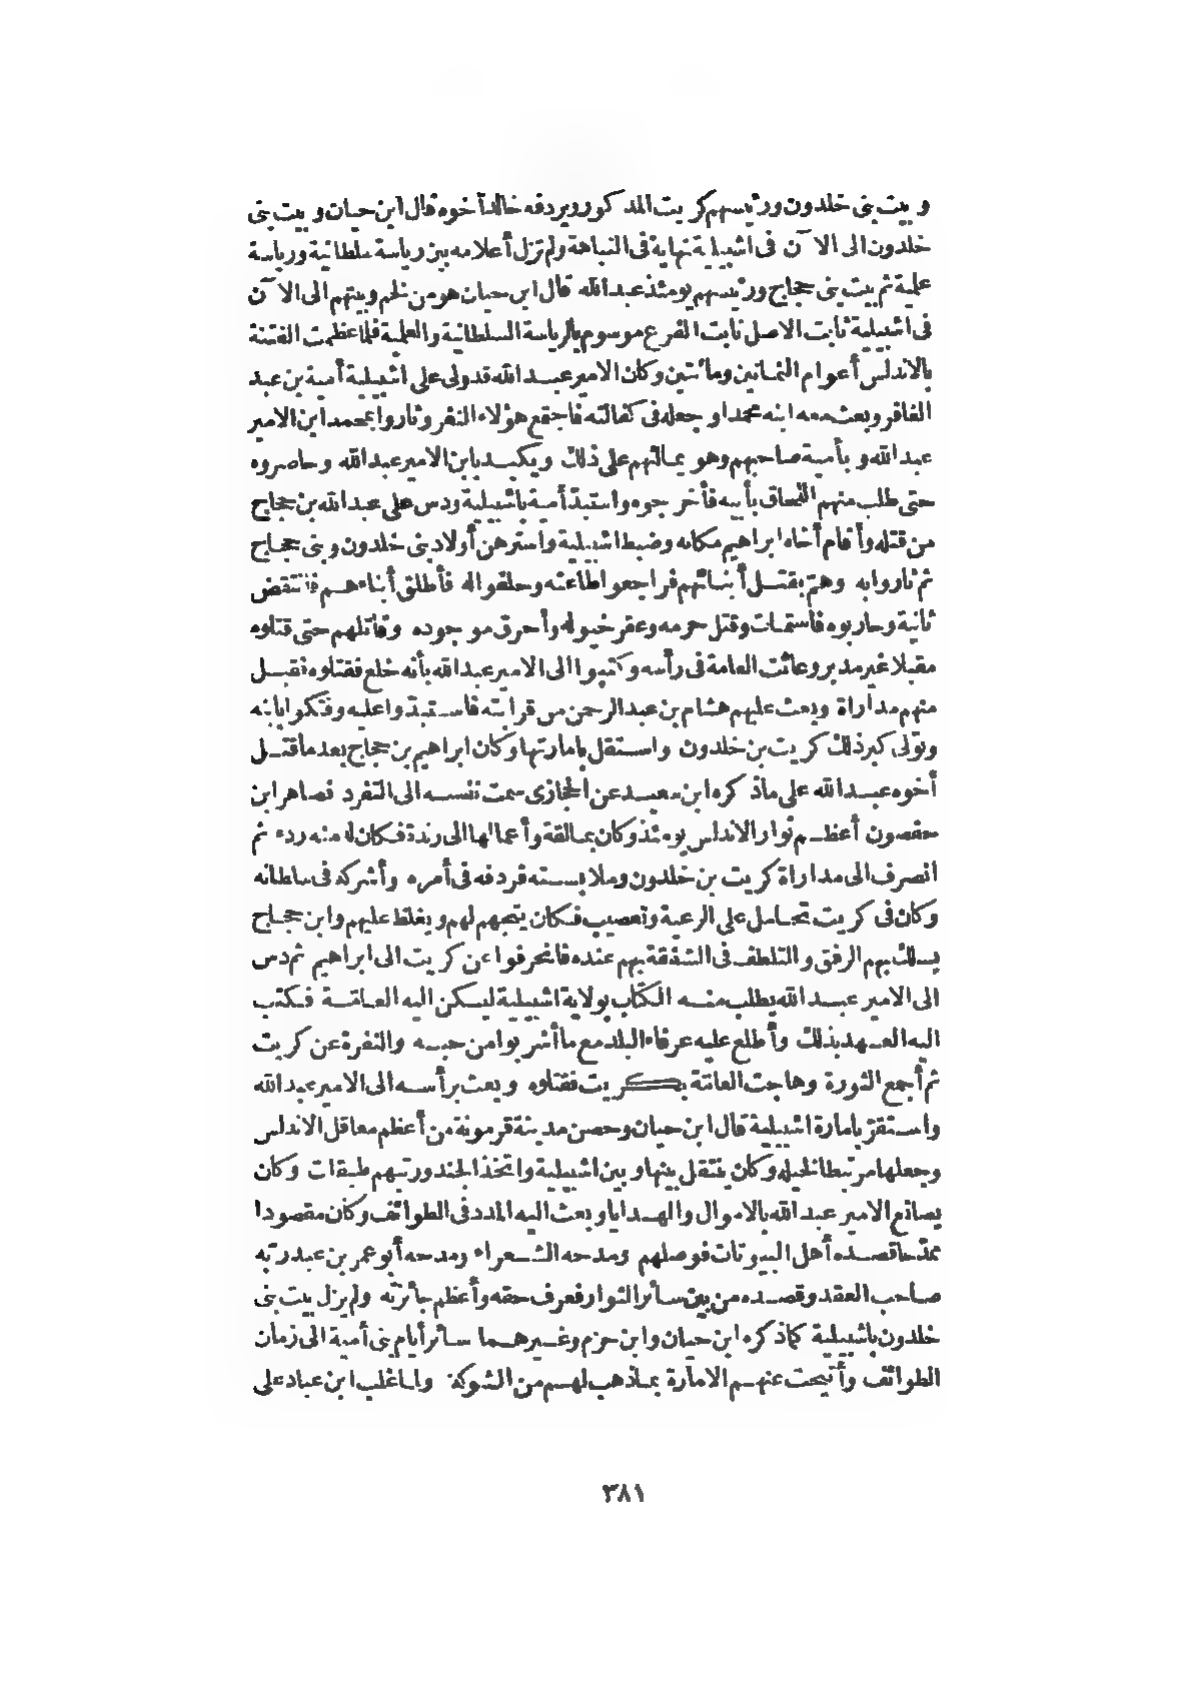 وبيت بنى خلدون ورئيسهم كريت المذكور ويردفه خالدا خوه قال ابن حيان وبيت بنى
خلدون الى الآن فى اشبيلية نهاية فى النباهة ولم تزل أعلامه بين رياسة سلطانية ورياسة
علمية ثم بيت بنى حجاج ورئيسهم يومئذ عبد الله قال ابن حيان هو من لخم وبيتهم الى الآن
فى اشبيلية ثابت الاصل نابت الفرع موسوم بالرياسة السلطانية والعلمية فلما عظمت الفتنة
بالاندلس أعوام الثمانين ومائتين وكان الامير عبد الله قد ولى على اشبيلية أمية بن عبد
الغافر وبعث معه ابنه محمدا وجعله فى كفالته فاجتمع هؤلاء النفر وثاروا بمحمد ابن الامير
عبد الله وبأمية صاحبهم وهو يمالئهم على ذلك ويكيد بابن الامير عبد الله وحاصروه
حتى طلب منهم اللحاق بأبيه فأخرجوه واستبدّ أمية باشبيلية ودس على عبد الله بن حجاج
من قتله وأقام أخاه ابراهيم مكانه وضبط اشبيلية واسترهن أولاد بنى خلدون وبنى حجاج
ثم ثاروا به وهمّ بقتل أبنائهم فراجعوا طاعته وحلفوا له فأطلق أبناءهم فانتقض
ثانية وحاربوه فاستمات وقتل حرمه وعقر خيوله وأحرق موجوده وقاتلهم حتى قتلوه
مقبلا غير مدبر وعاثت العامة فى رأسه وكتبوا الى الامير عبد الله بأنه خلع فقتلوه فقبل
منهم مداراة وبعث عليهم هشام بن عبد الرحمن من قرابته فاستبدّوا عليه وفتكوا بابنه
وتولى كبر ذلك كريت بن خلدون واستقل بامارتها وكان ابراهيم بن حجاج بعد ما قتل
أخوه عبد الله على ما ذكره ابن سعيد عن الحجازى سمت نفسه الى التفرد فصاهر ابن
حفصون أعظم ثوار الاندلس يومئذ وكان بمالقة وأعمالها الى رندة فكان له منه ردء ثم
انصرف الى مداراة كريت بن خلدون وملابسته فردفه فى أمره وأشركه فى سلطانه
وكان فى كريت تحامل على الرعية وتعصيب فكان يتجهم لهم ويغلظ عليهم وابن حجاج
يسلك بهم الرفق والتلطف فى الشفقة بهم عنده فانحرفوا عن كريت الى ابراهيم ثم دس
الى الامير عبد الله يطلب منه الكتاب بولاية اشبيلية ليسكن اليه العامّة فكتب
اليه العهد بذلك وأطلع عليه عرفاء البلد مع ما أشربوا من حبه والنفرة عن كريت
ثم أجمع الثورة وهاجت العامّة بكريت فقتلوه وبعث برأسه الى الامير عبد الله
واستقرّ بامارة اشبيلية قال ابن حيان وحصن مدينة قرمونة من أعظم معاقل الاندلس
وجعلها مرتبطا لخيله وكان ينتقل بينها وبين اشبيلية واتخذ الجند ورتبهم طبقات وكان
يصانع الامير عبد الله بالاموال والهدايا وبعث اليه المدد فى الطوائف وكان مقصودا
ممدّحا قصده أهل البيوتات فوصلهم ومدحه الشعراء ومدحه أبو عمر بن عبد ربّه
صاحب العقد وقصده من بين سائر الثوار فعرف حقه وأعظم جائزته ولم يزل بيت بنى
خلدون باشبيلية كما ذكره ابن حيان وابن حزم وغيرهما سائر أيام بنى أمية الى زمان
الطوائف وأنيحت عنهم الامارة بما ذهب لهم من الشوكة ولما غلب ابن عباد على
٣٨١